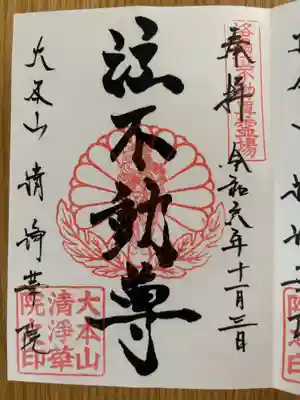 不動尊霊場
奉拝 令和六年十一月三日
泣不動尊
大本山 清浄華院
大本山
清淨華
院印